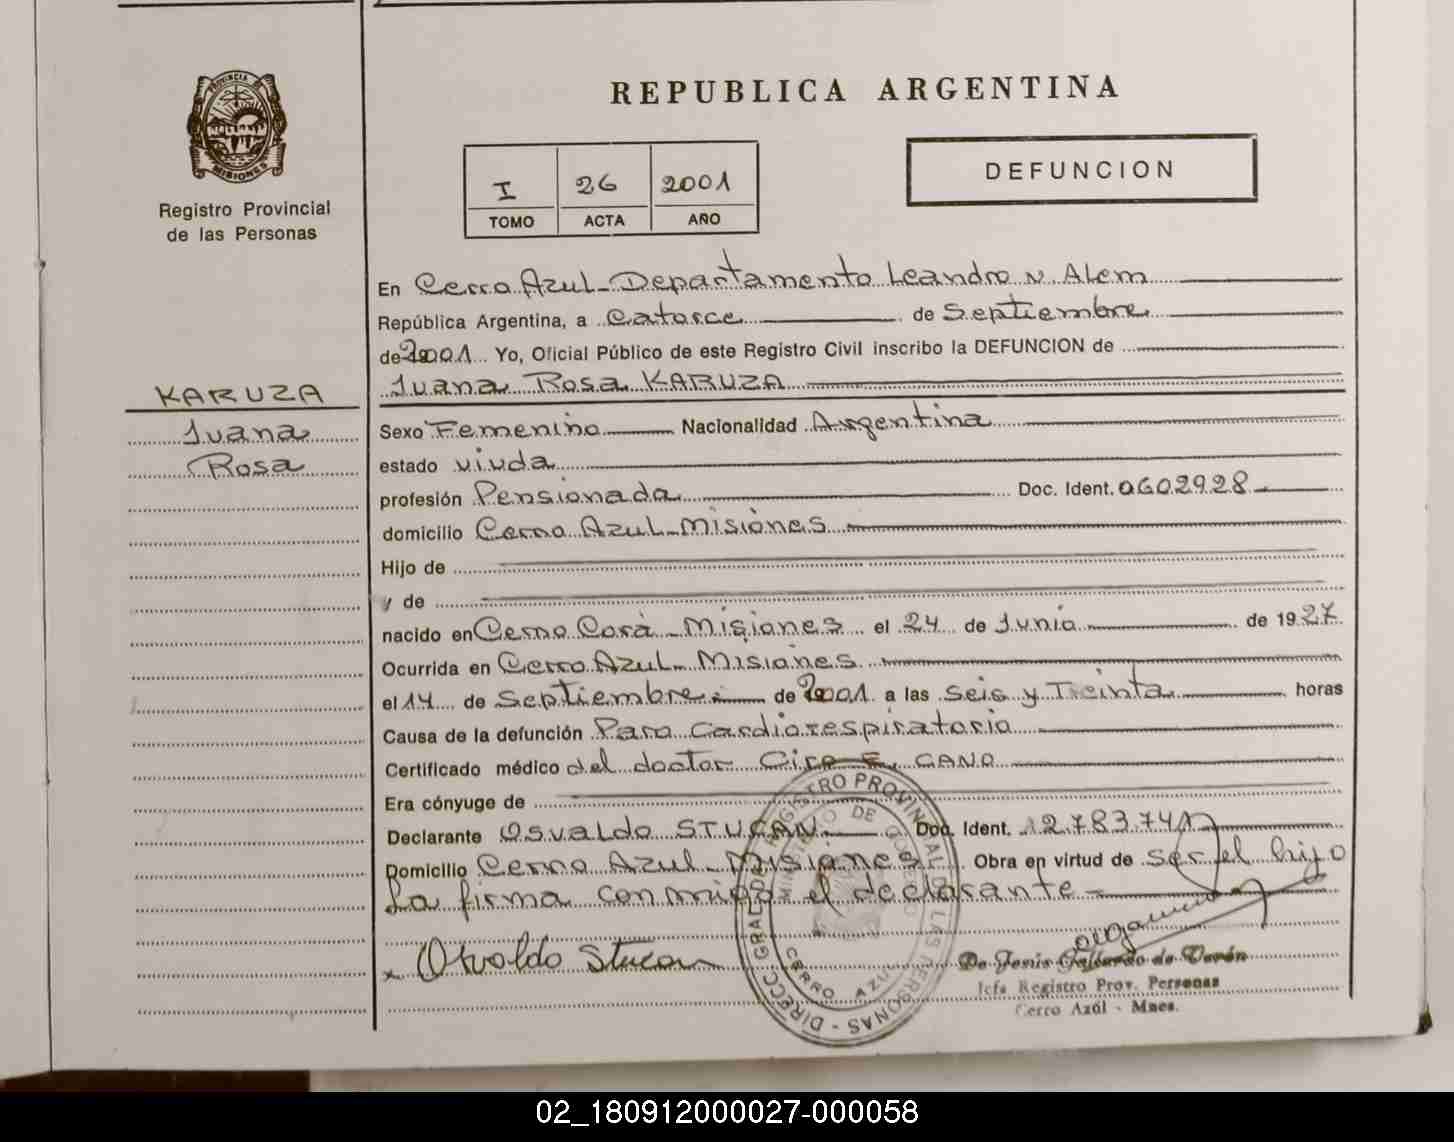 PROVINCIA DE
MISIONES
Registro Provincial
de las Personas
REPUBLICA ARGENTINA
I 26 2001
TOMO ACTA AÑO
DEFUNCION
En Cerro Azul - Departamento Leandro N. Alem
República Argentina, a Catorce de Septiembre
de 2001 Yo, Oficial Público de este Registro Civil inscribo la DEFUNCION de
Juana Rosa KARUZA
KARUZA
Juana
Rosa
Sexo Femenino Nacionalidad Argentina
estado viuda
profesión Pensionada Doc. Ident. 0602928
domicilio Cerro Azul - Misiones
Hijo de
y de
nacido en Cerro Corá - Misiones el 24 de Junio de 1927
Ocurrida en Cerro Azul - Misiones
el 14 de Septiembre de 2001 a las Seis y Treinta horas
Causa de la defunción Paro Cardiorespiratorio
Certificado médico del doctor Ciro E. CANO
Era cónyuge de
Declarante Osvaldo STUCAN Doc. Ident. 12783741
Domicilio Cerro Azul - Misiones Obra en virtud de ser el hijo
La firma conmigo el declarante -
x Osvaldo Stucan
DIRECC. GRAL. DE REGISTRO PROVINCIAL DE LAS PERSONAS -
MINISTERIO DE GOBIERNO
CERRO AZUL
De Jesús Gallardo de Verón
Jefa Registro Prov. Personas
Cerro Azúl - Mnes.
02_180912000027-000058